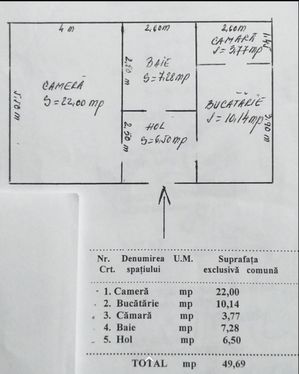 4 m
2,60m
2,60m
1,45
CAMARĂ
S=3,77mp
BAIE
S=7,28mp
2,80 m
CAMERĂ
S=22,00 mp
5,50 m
BUCĂTĂRIE
S=10,14mp
HOL
S=6,50mp
2,50 m
3,90 m
Nr. Denumirea U.M. Suprafața
Crt. spațiului exclusivă comună
1. Cameră mp 22,00
2. Bucătărie mp 10,14
3. Cămară mp 3,77
4. Baie mp 7,28
5. Hol mp 6,50
TOTAL mp 49,69